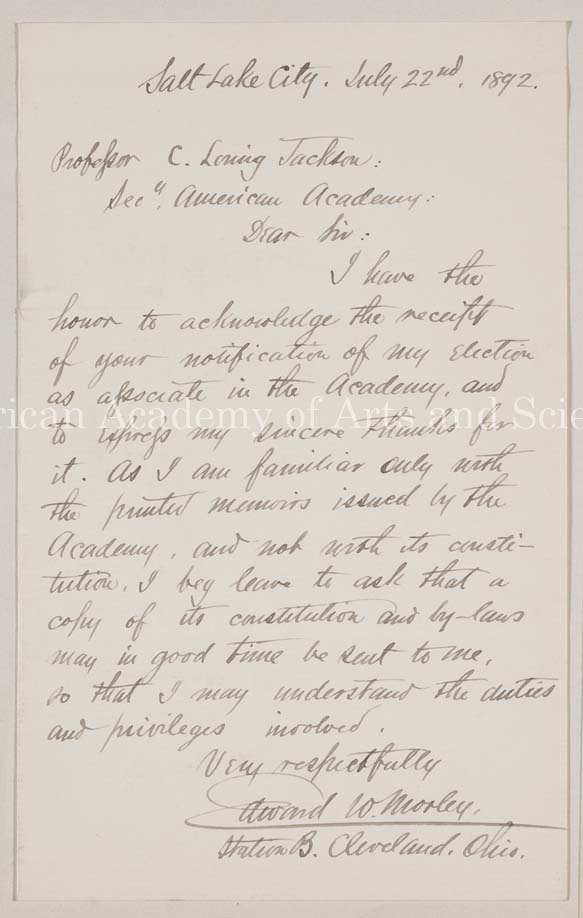 Salt Lake City. July 22nd. 1892.
Professor C. Loring Jackson:
Sec'y. American Academy:
Dear Sir:
I have the
honor to acknowledge the receipt
of your notification of my election
as associate in the Academy, and
rican Academy of Arts and Scie
to express my sincere thanks for
it. As I am familiar only with
the printed memoirs issued by the
Academy, and not with its consti-
tution, I beg leave to ask that a
copy of its constitution and by-laws
may in good time be sent to me,
so that I may understand the duties
and privileges involved.
Very respectfully
Edward W. Morley.
Station B. Cleveland. Ohio.